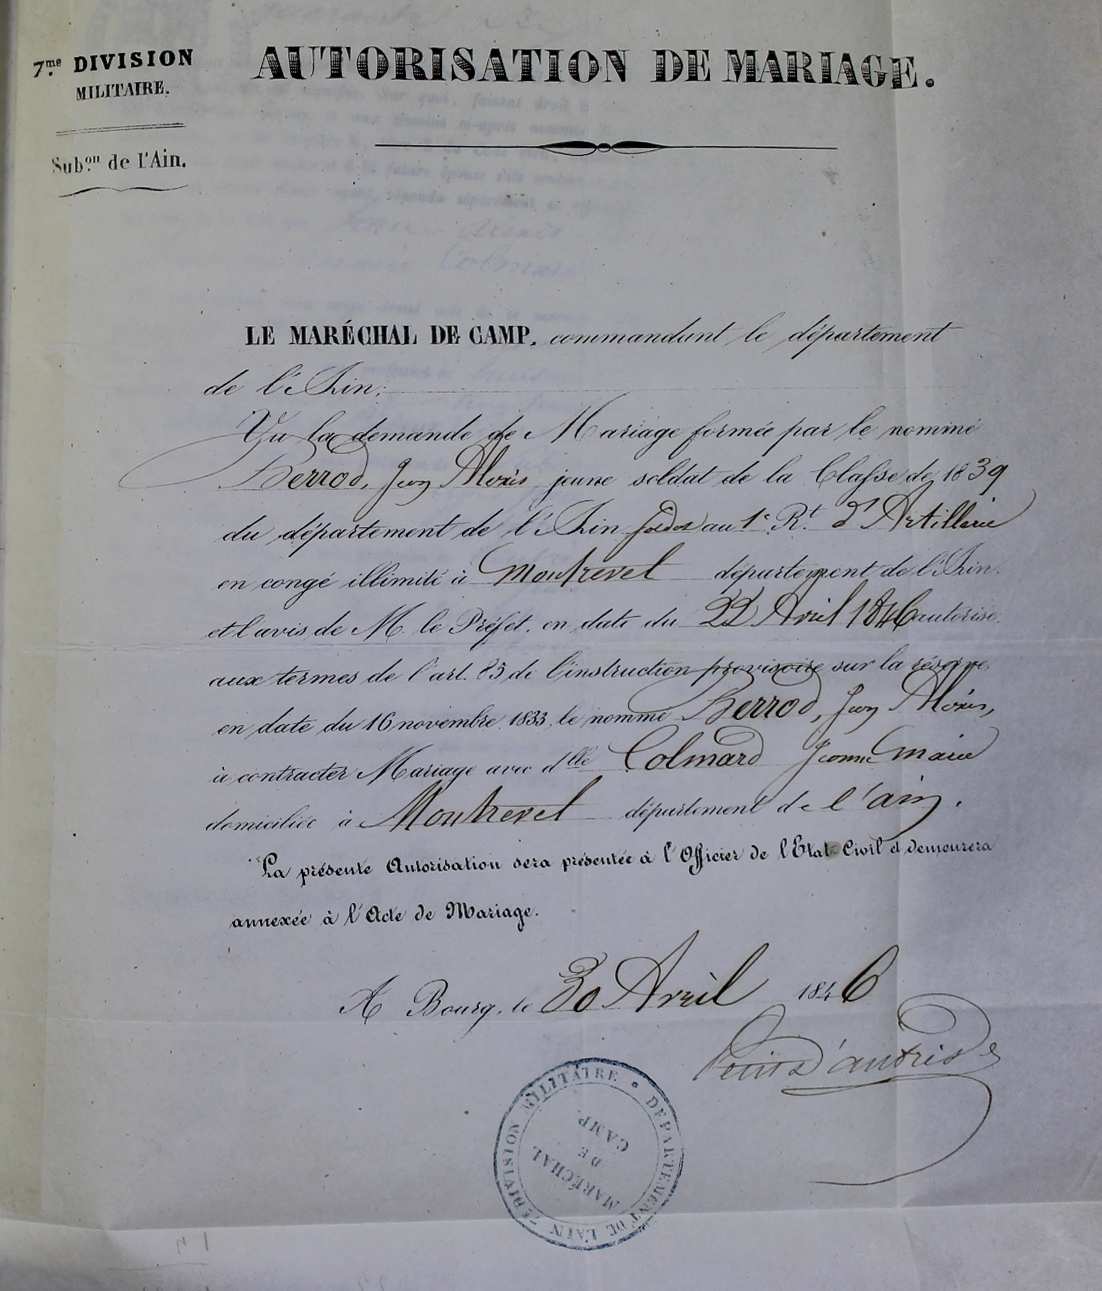 7.me DIVISION
MILITAIRE.
Sub.on de l'Ain.
AUTORISATION DE MARIAGE.
LE MARÉCHAL DE CAMP, commandant le département
de l'Ain;
Vu la demande de Mariage formée par le nommé
Herrod, Jean Alexis, jeune soldat de la Classe de 1839
du département de l'Ain au 1er R.t d'Artillerie
en congé illimité à Montrevel département de l'Ain.
et l'avis de M. le Préfet, en date du 22 Avril 1846 autorise,
aux termes de l'art. 85 de l'instruction provisoire sur la réserve,
en date du 16 novembre 1833, le nommé Herrod, Jean Alexis,
à contracter Mariage avec dlle Colmard Jeanne Marie
domiciliée à Montrevel département de l'ain.
La présente Autorisation sera présentée à l'Officier de l'Etat Civil et demeurera
annexée à l'Acte de Mariage.
A Bourg, le 30 Avril 1846
7E DIVISION MILITAIRE • DÉPARTEMENT DE L'AIN
MARÉCHAL
DE
CAMP.